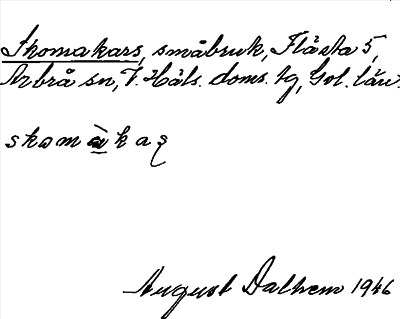 Skomakars, småbruk, Flästa 5,
Arbrå sn, V. Häls. doms. tg, Gvl. län.
skomàkaʂ
August Dalhem 1946